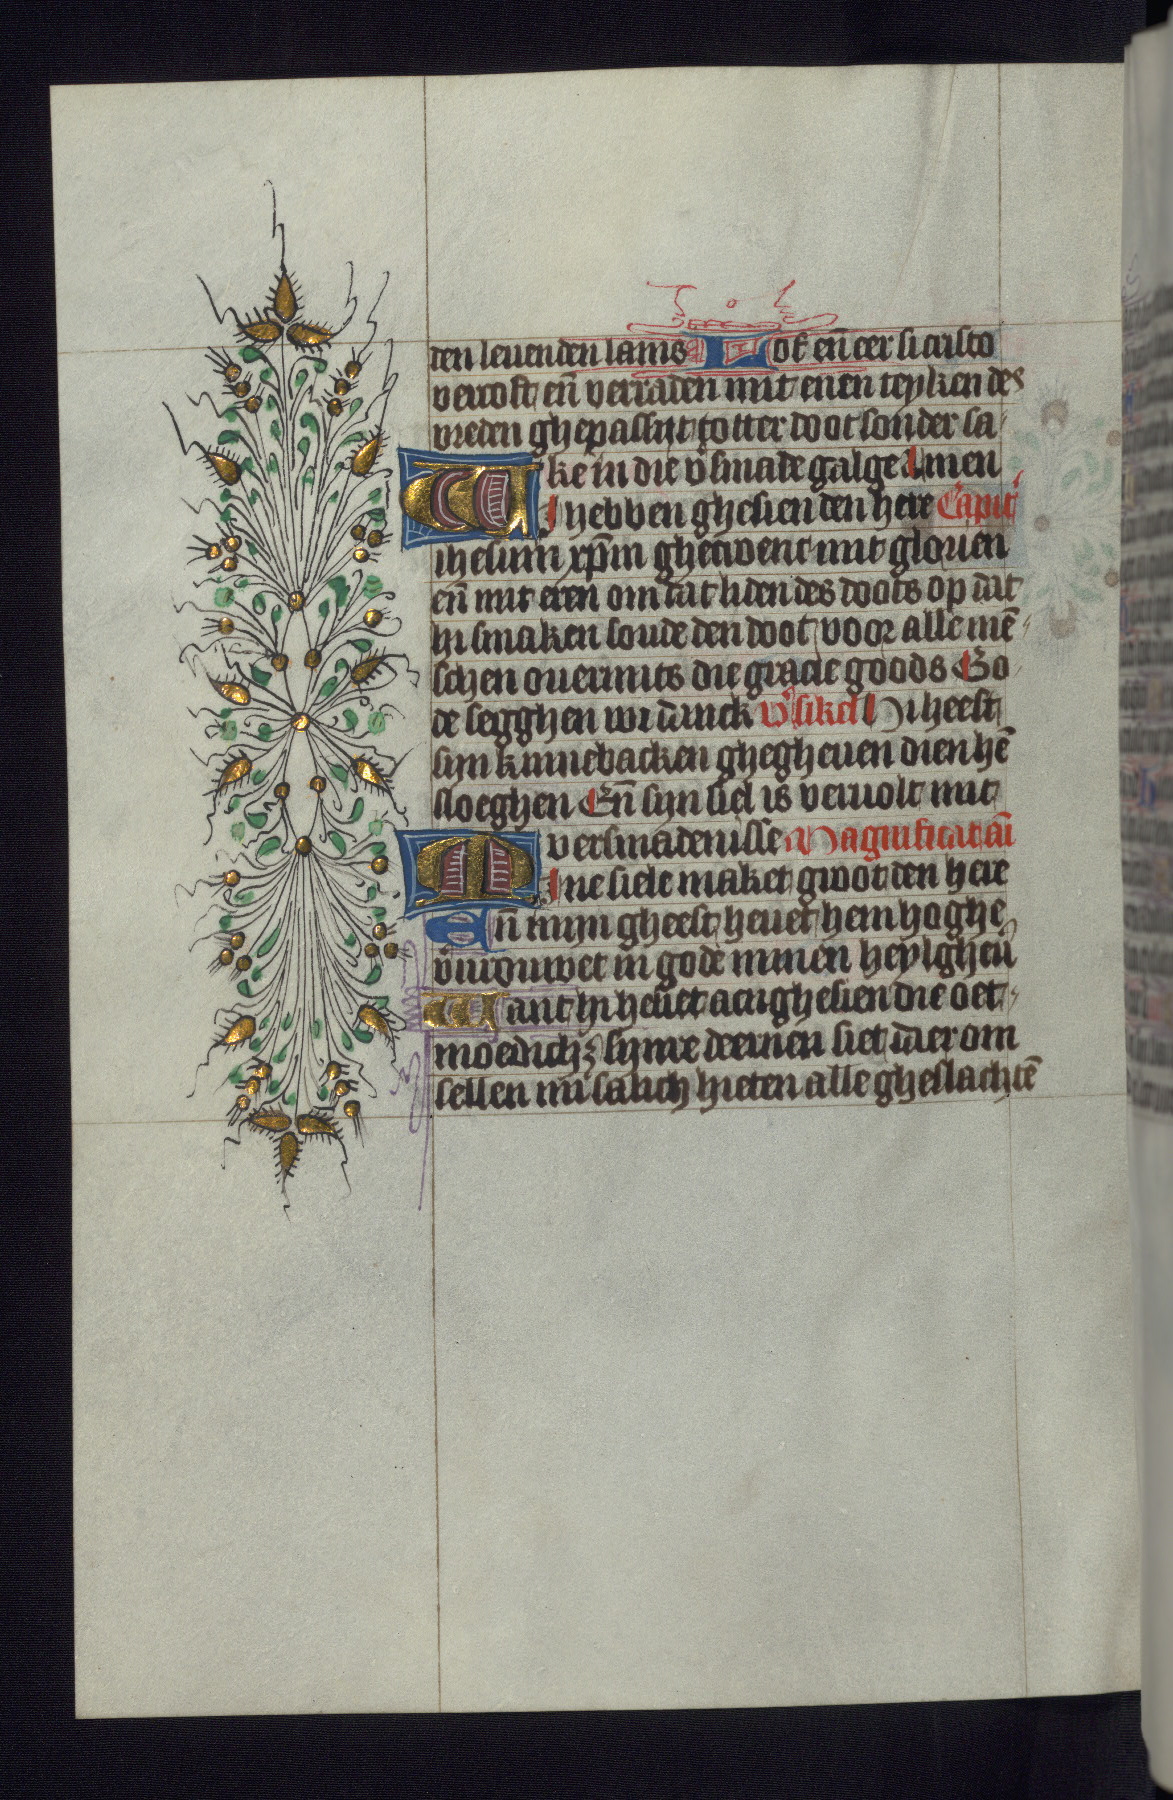 den leuenden lams Lof eñ eer si cristo
vercoft eñ verraden mit enen teyken des
vreden ghepassijt totter doot sonder sa
ke in die v̄smade galge Amen
WI hebben ghesien den here Capit̄
ihesum xp̄m ghecroent mit glorien
eñ mit eren om dat liden des doots op dat
hi smaken soude den doot voor alle mē
schen ouermits die gracie goods Go
de segghen wi danck v̄sikel Hi heeft
sijn kinnebacken ghegheuen dien hē
sloeghen Eñ sijn siel is veruolt mit
versmadenisse Magnificat añ
MIne siele maket groot den here
Eñ mijn gheest heuet hem hoghe
v̄urouwet in gode minen heylgheū
Want hi heuet aengesien die oet
moedich; sijnre deernen siet daer om
sellen mi salich hieten alle gheslachtē